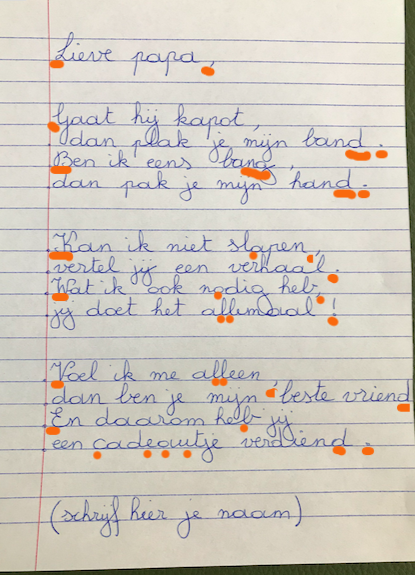 Lieve papa,
Gaat hij kapot,
dan plak je mijn band.
Ben ik eens bang,
dan pak je mijn hand.
Kan ik niet slapen,
vertel jij een verhaal.
Wat ik ook nodig heb,
jij doet het allemaal!
Voel ik me alleen,
dan ben je mijn beste vriend
En daarom heb jij
een cadeautje verdiend.
(schrijf hier je naam)